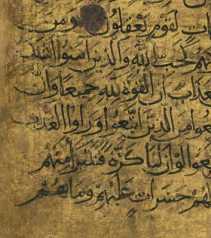 ات لقوم يعقلون ومن
نهم كحب الله والذين امنوا اشد
لعذاب ان القوة لله جميعا وان
بعوا من الذين اتبعوا وراوا العذ
بعوا لو ان لنا كرة فنتبرا منهم
لهم حسرات عليهم وما هم